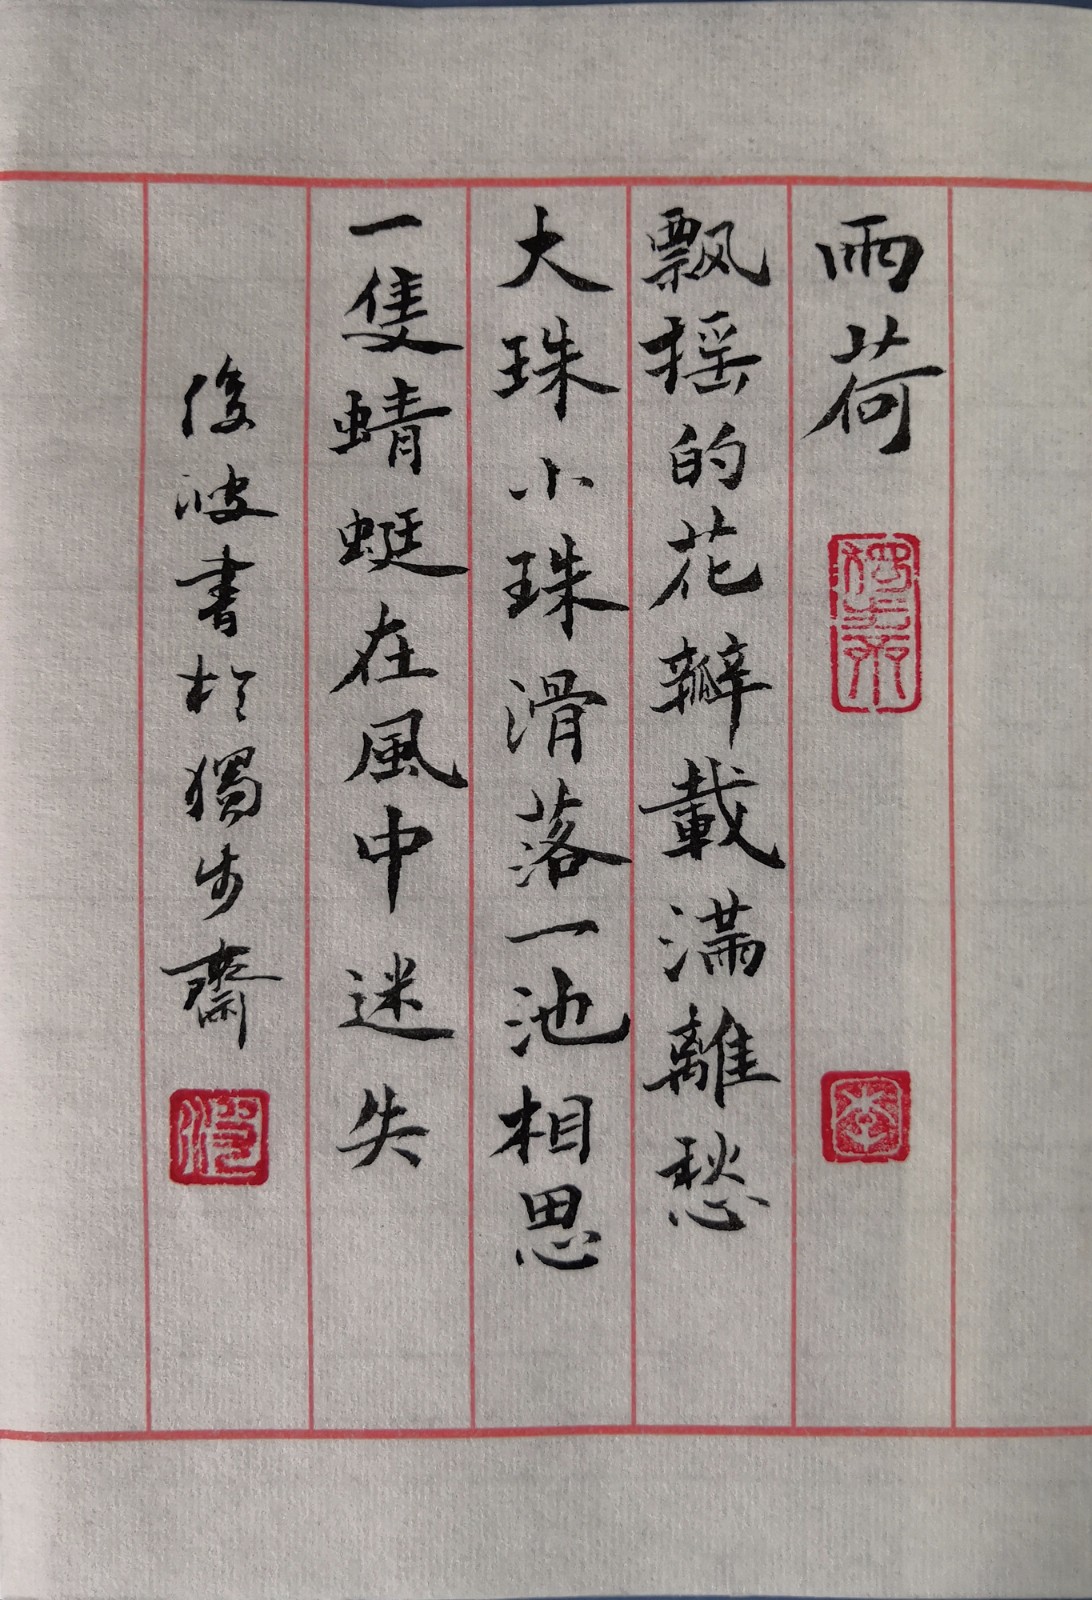 雨荷
飘摇的花瓣載满離愁
大珠小珠滑落一池相思
一隻蜻蜓在風中迷失
俊波書於獨步齋
李
波